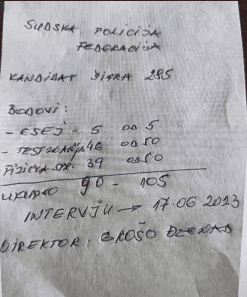 SUDSKA POLICIJA
FEDERACIJA
KANDIDAT ŠIFRA 285
BODOVI:
- ESEJ - 5 OD 5
- TESTOVANJE 46 OD 50
- FIZIČKA SPR. 39 OD 50
UKUPNO 90 - 105
INTERVJU → 17.06 2023
DIREKTOR: GROŠO DŽENAD